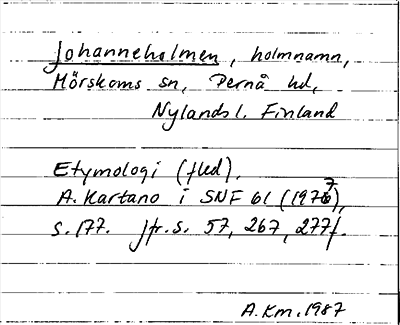 Johanneholmen, holmnamn,
Mörskoms sn, Pernå hd,
Nylands l. Finland
Etymologi (fled).
A. Kartano i SNF 61 (1977),
s. 177. Jfr. s. 57, 267, 277f.
A.Km.1987